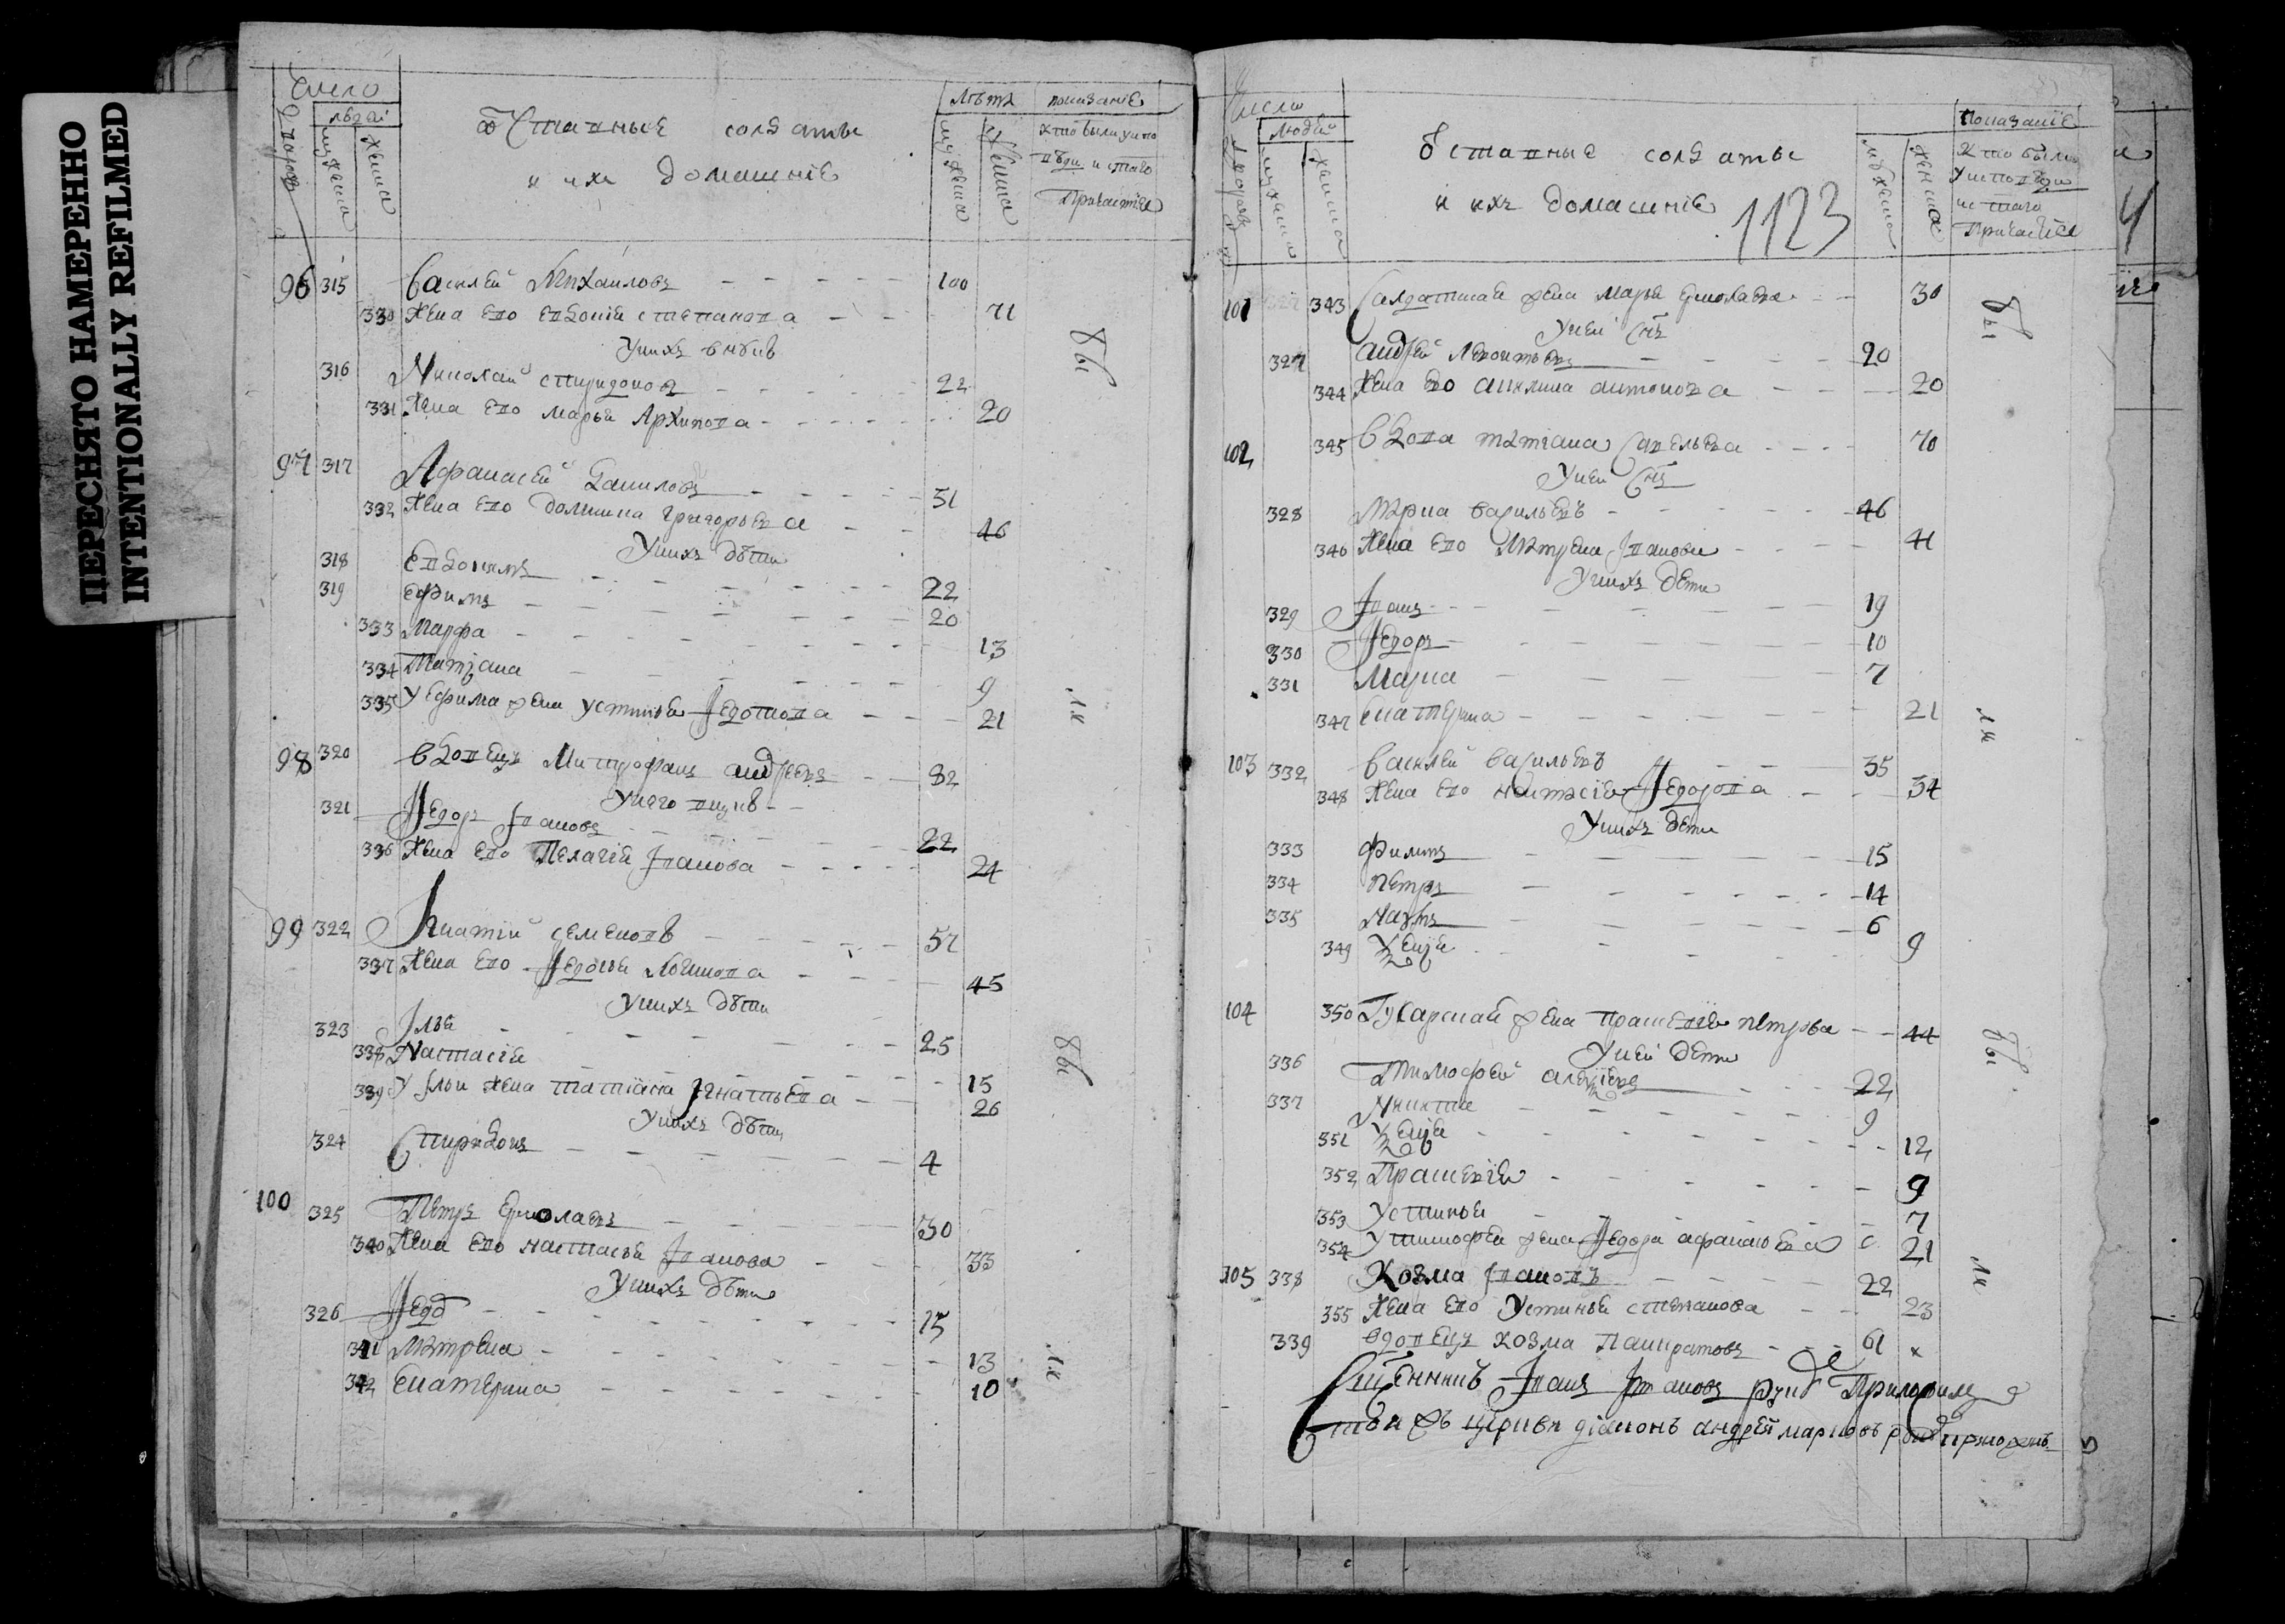 ПЕРЕСНЯТО НАМЕРЕННО
INTENTIONALLY REFILMED
число
дворовъ
людей
мужеска
женска
Ѿставные солдаты
и ихъ домашнїе
лѣта
мужеска
женска
показанїе
кто были у испо
вѣди и с̑таго
причастїя
96 315 Василей Михаиловъ 100
330 Жена ево Евдокїя степанова 71
У нихъ внукъ
316 Николай спиридоновъ 22
331 Жена ево марья Архипова 20
бы
97 317 Афанасей Даниловъ 51
332 Жена ево домнина григорьева 46
У нихъ дѣти
318 Евдокимъ 22
319 ефимъ 20
333 Марфа 13
334 Татїана 9
335 У ефима жена устинья Федотова 21
ли
98 320 вдовецъ Митрофанъ андреевъ 82
У него внукъ
321 Федоръ Ивановъ 22
336 Жена ево Пелагїя Иванова 24
99 322 Игнатїй семеновъ 57
337 Жена ево Федосья Логинова 45
У нихъ дѣти
323 Илья 25
338 Настасїя 15
339 У Ильи жена татїана Игнатьева 26
У нихъ дѣти
324 Спиридонъ 4
бы
100 325 Петръ Ермолаевъ 30
340 Жена ево настасья Иванова 33
У нихъ дѣти
326 Федоръ 15
341 Матрена 13
342 Екатерина 10
ли
число
дворовъ
людей
мужеска
женска
Ѿставные солдаты
и ихъ домашнїе
1123
мужеска
женска
показанїе
кто были
у исповѣди
и с̑таго
причастїя
101 343 Салдатская жена марья ермолаева 30
У неи с̑нъ
327 андрей Леонтьевъ 20
344 Жена ево акилина антонова 20
бы
102 345 Вдова татїана Савельева 70
У неи с̑нъ
328 Марка васильевъ 46
346 Жена ево Матрена Иванова 41
У нихъ дети
329 Иванъ 19
330 Федоръ 10
331 Марка 7
347 Екатерина 21
ли
103 332 Василей васильевъ 35
348 Жена ево настасїя Федорова 34
У нихъ дети
333 Филипъ 15
334 Петръ 14
335 Наумъ 6
349 Ѯенїя 9
104 350 Гусарская жена прасковїя петрова 44
У неи дети
336 Тимофей алеѯеевъ 22
337 Никита 9
351 Ѯенїя 12
352 Прасковїя 9
353 Устинья 7
354 У тимофея жена Федора афанасьева 21
бы
105 338 Козма Ивановъ 22
355 Жена ево Устинья степанова 23
339 вдовецъ козма Панкратовъ 61
ли
Священникъ Иванъ Ивановъ руку Приложилъ
Тоя жъ церкви дїаконъ андрей марковъ руку приложилъ